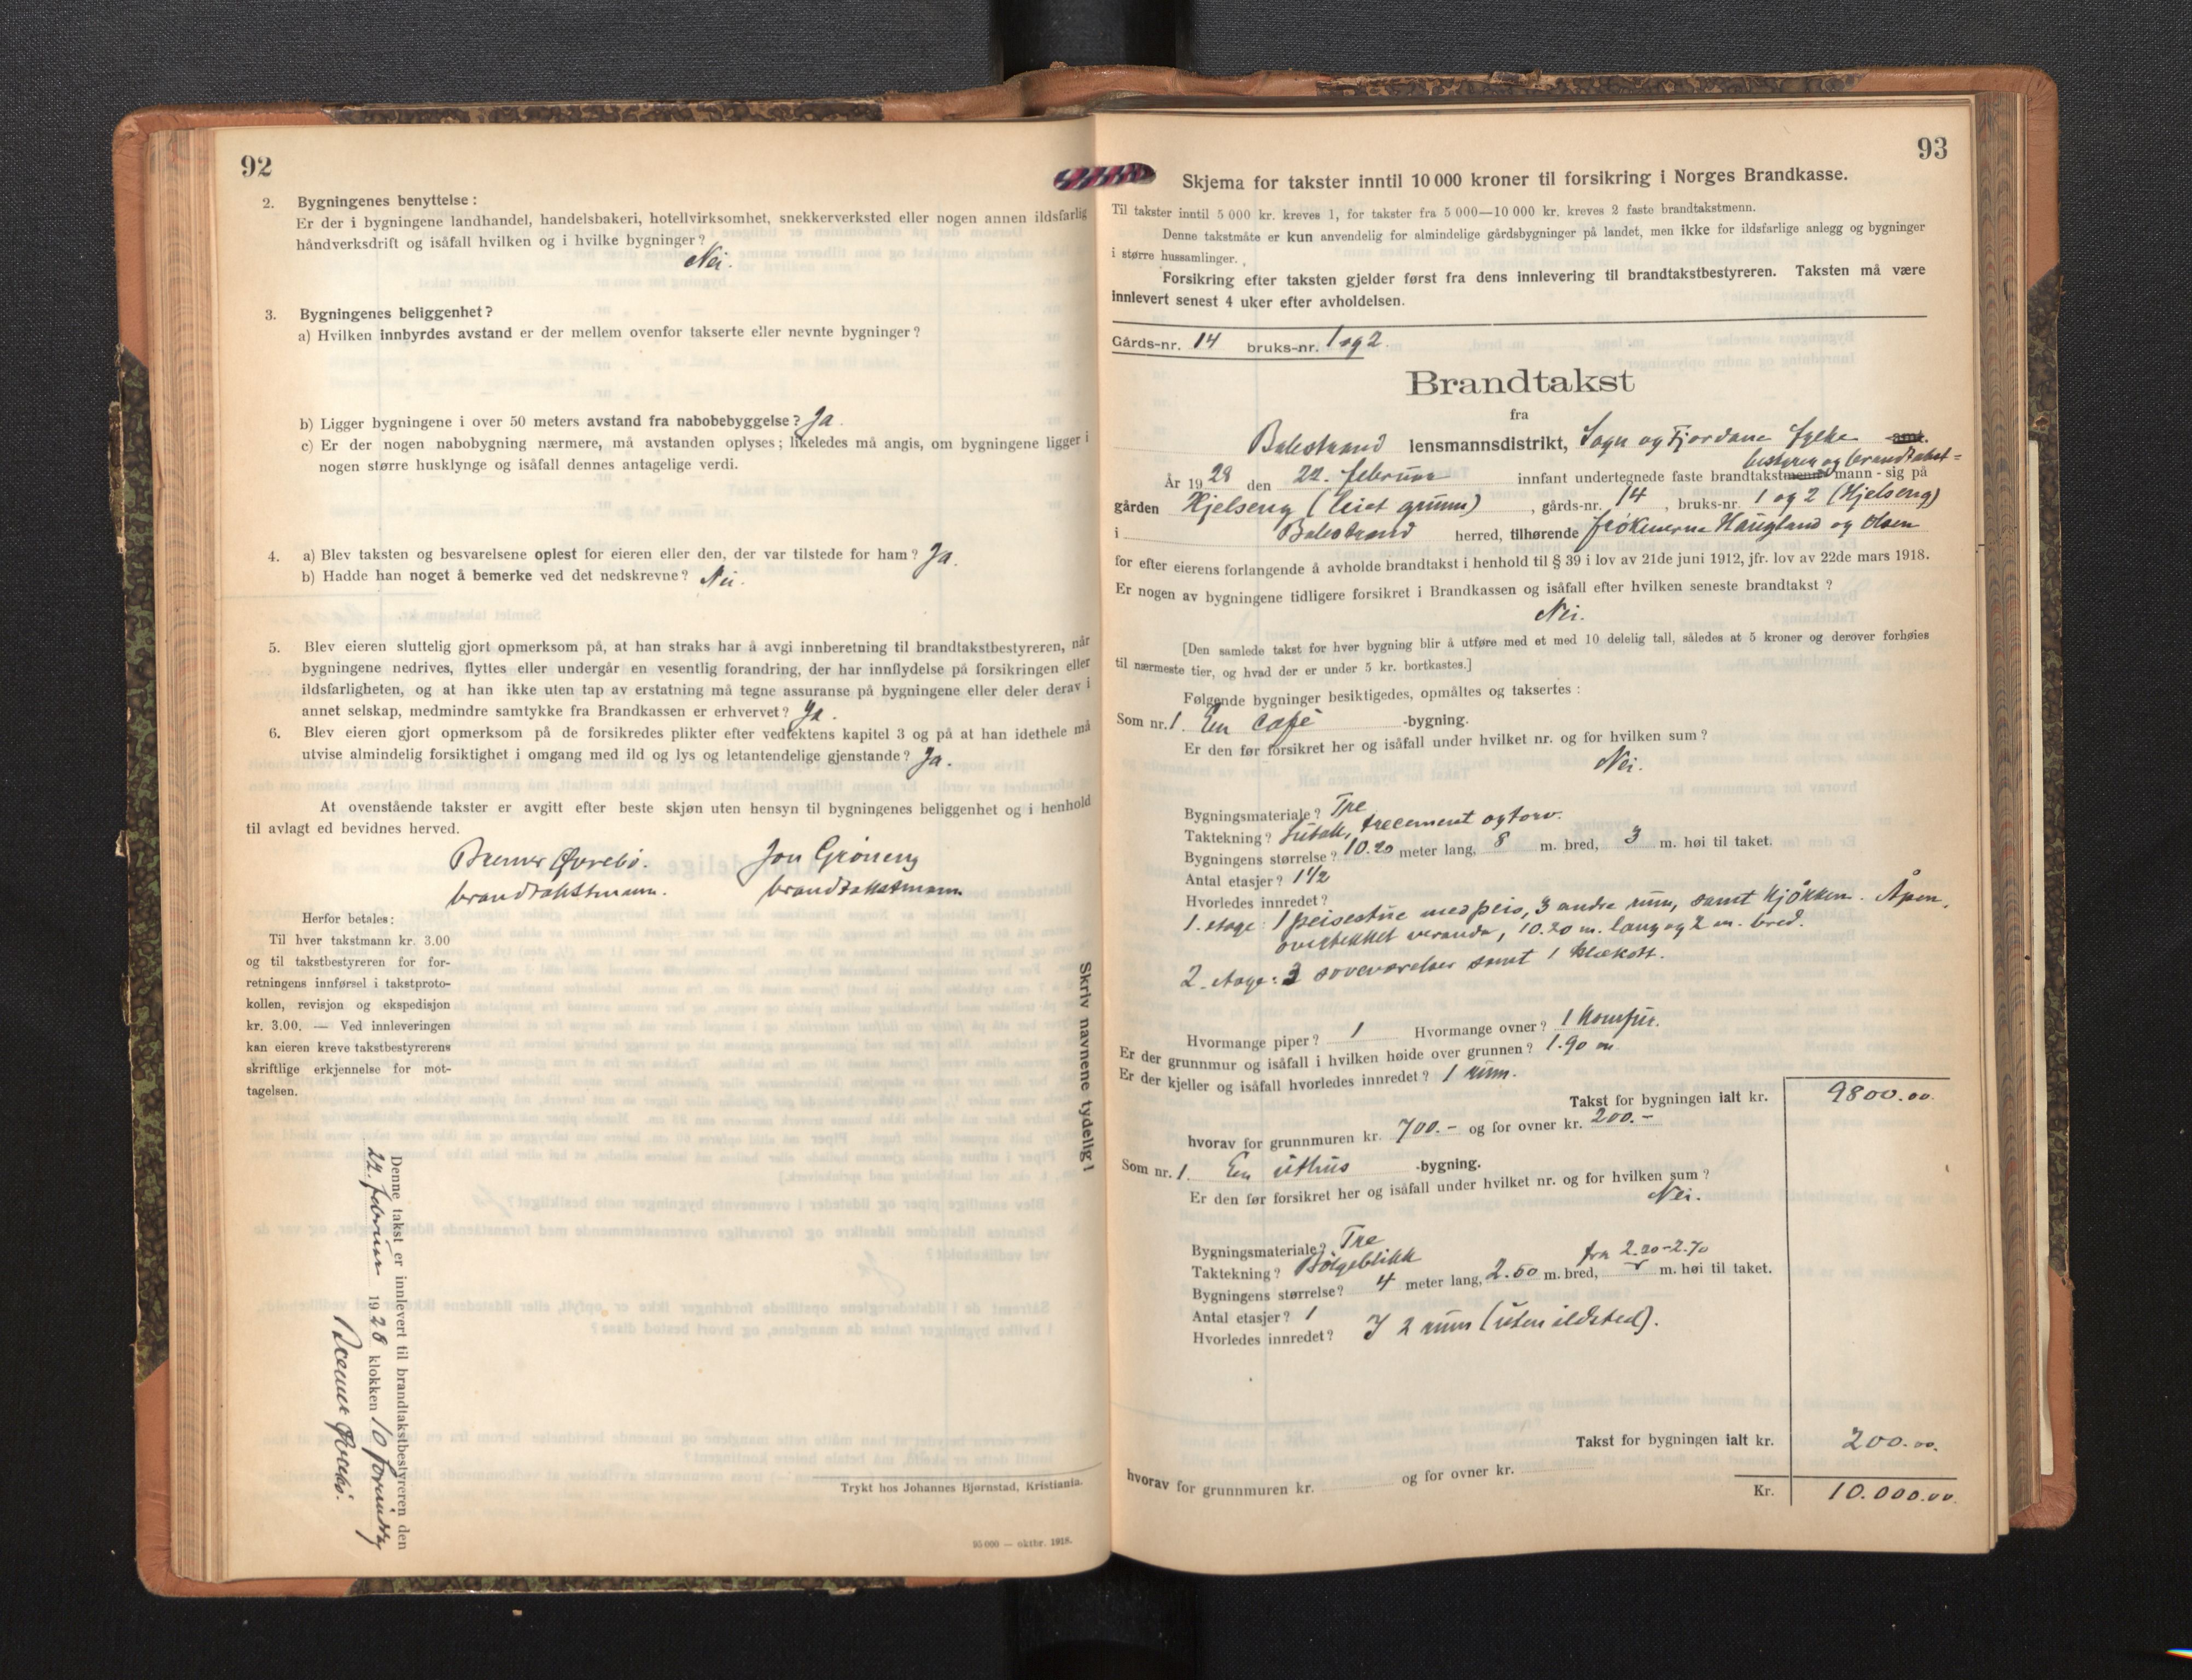 92
2. Bygningenes benyttelse:
Er der i bygningene landhandel, handelsbakeri, hotellvirksomhet, snekkerverksted eller nogen annen ildsfarlig
håndverksdrift og isåfall hvilken og i hvilke bygninger?
Nei.
3. Bygningenes beliggenhet?
a) Hvilken innbyrdes avstand er der mellem ovenfor takserte eller nevnte bygninger?
b) Ligger bygningene i over 50 meters avstand fra nabobebyggelse? Ja.
c) Er der nogen nabobygning nærmere, må avstanden oplyses; likeledes må angis, om bygningene ligger i
nogen større husklynge og isåfall dennes antagelige verdi.
4. a) Blev taksten og besvarelsene oplest for eieren eller den, der var tilstede for ham? Ja.
b) Hadde han noget å bemerke ved det nedskrevne? Nei.
5. Blev eieren sluttelig gjort opmerksom på, at han straks har å avgi innberetning til brandtakstbestyreren, når
bygningene nedrives, flyttes eller undergår en vesentlig forandring, der har innflydelse på forsikringen eller
ildsfarligheten, og at han ikke uten tap av erstatning må tegne assuranse på bygningene eller deler derav i
annet selskap, medmindre samtykke fra Brandkassen er erhvervet? Ja.
6. Blev eieren gjort opmerksom på de forsikredes plikter efter vedtektens kapitel 3 og på at han idethele må
utvise almindelig forsiktighet i omgang med ild og lys og letantendelige gjenstande? Ja.
At ovenstående takster er avgitt efter beste skjøn uten hensyn til bygningenes beliggenhet og i henhold
til avlagt ed bevidnes herved.
Bremer Øvrebø. Jon Grøneng
brandtakstmann. brandtakstmann
Herfor betales:
Til hver takstmann kr. 3.00
og til takstbestyreren for for-
retningens innførsel i takstproto-
kollen, revisjon og ekspedisjon
kr. 3.00. — Ved innleveringen
kan eieren kreve takstbestyrerens
skriftlige erkjennelse for mot-
tagelsen.
Skriv navnene tydelig!
Denne takst er innlevert til brandtakstbestyreren den
22. februar 1928 klokken 10 formiddag
Bremer Øvrebø.
Trykt hos Johannes Bjørnstad, Kristiania.
95 000 — oktbr. 1918.
93
Skjema for takster inntil 10 000 kroner til forsikring i Norges Brandkasse.
Til takster inntil 5 000 kr. kreves 1, for takster fra 5 000—10 000 kr. kreves 2 faste brandtakstmenn.
Denne takstmåte er kun anvendelig for almindelige gårdsbygninger på landet, men ikke for ildsfarlige anlegg og bygninger
i større hussamlinger.
Forsikring efter taksten gjelder først fra dens innlevering til brandtakstbestyreren. Taksten må være
innlevert senest 4 uker efter avholdelsen.
Gårds-nr. 14 bruks-nr. 1 og 2.
Brandtakst
fra
Balestrand lensmannsdistrikt, Sogn og Fjordane fylke amt.
bestyrer og brandtakst=
År 1928 den 22. februar innfant undertegnede faste brandtakstmenn mann - sig på
gården Hjelseng (leiet grunn), gårds-nr. 14, bruks-nr. 1 og 2 (Hjelseng)
i Balestrand herred, tilhørende frøknerne Haugland og Olsen
for efter eierens forlangende å avholde brandtakst i henhold til § 39 i lov av 21de juni 1912, jfr. lov av 22de mars 1918.
Er nogen av bygningene tidligere forsikret i Brandkassen og isåfall efter hvilken seneste brandtakst?
Nei.
[Den samlede takst for hver bygning blir å utføre med et med 10 delelig tall, således at 5 kroner og derover forhøies
til nærmeste tier, og hvad der er under 5 kr. bortkastes.]
Følgende bygninger besiktigedes, opmåltes og taksertes:
Som nr. 1. En café -bygning.
Er den før forsikret her og isåfall under hvilket nr. og for hvilken sum?
Nei.
Bygningsmateriale? Tre
Taktekning? Sutak, trecement og torv.
Bygningens størrelse? 10.20 meter lang, 8 m. bred, 3 m. høi til taket.
Antal etasjer? 1½
Hvorledes innredet?
1. etage: 1 peisestue med peis, 3 andre rum, samt kjøkken. Åpen,
overtekket veranda, 10.20 m. lang og 2 m. bred.
2. etage: 3 soveværelser samt 1 klækott.
Hvormange piper? 1 Hvormange ovner? 1 komfur.
Er der grunnmur og isåfall i hvilken høide over grunnen? 1.90 m
Er der kjeller og isåfall hvorledes innredet? 1 rum.
Takst for bygningen ialt kr. 9800.00
hvorav for grunnmuren kr. 700.- og for ovner kr. 200.-
Som nr. 1. En uthus -bygning.
Er den før forsikret her og isåfall under hvilket nr. og for hvilken sum?
Nei.
Bygningsmateriale? Tre
Taktekning? Bølgeblikk
fra 2.20-2.70
Bygningens størrelse? 4 meter lang, 2.50 m. bred, m. høi til taket.
Antal etasjer? 1
Hvorledes innredet? I 2 rum (uten ildsted).
Takst for bygningen ialt kr. 200.00.
hvorav for grunnmuren kr. og for ovner kr.
Kr. 10.000.00.